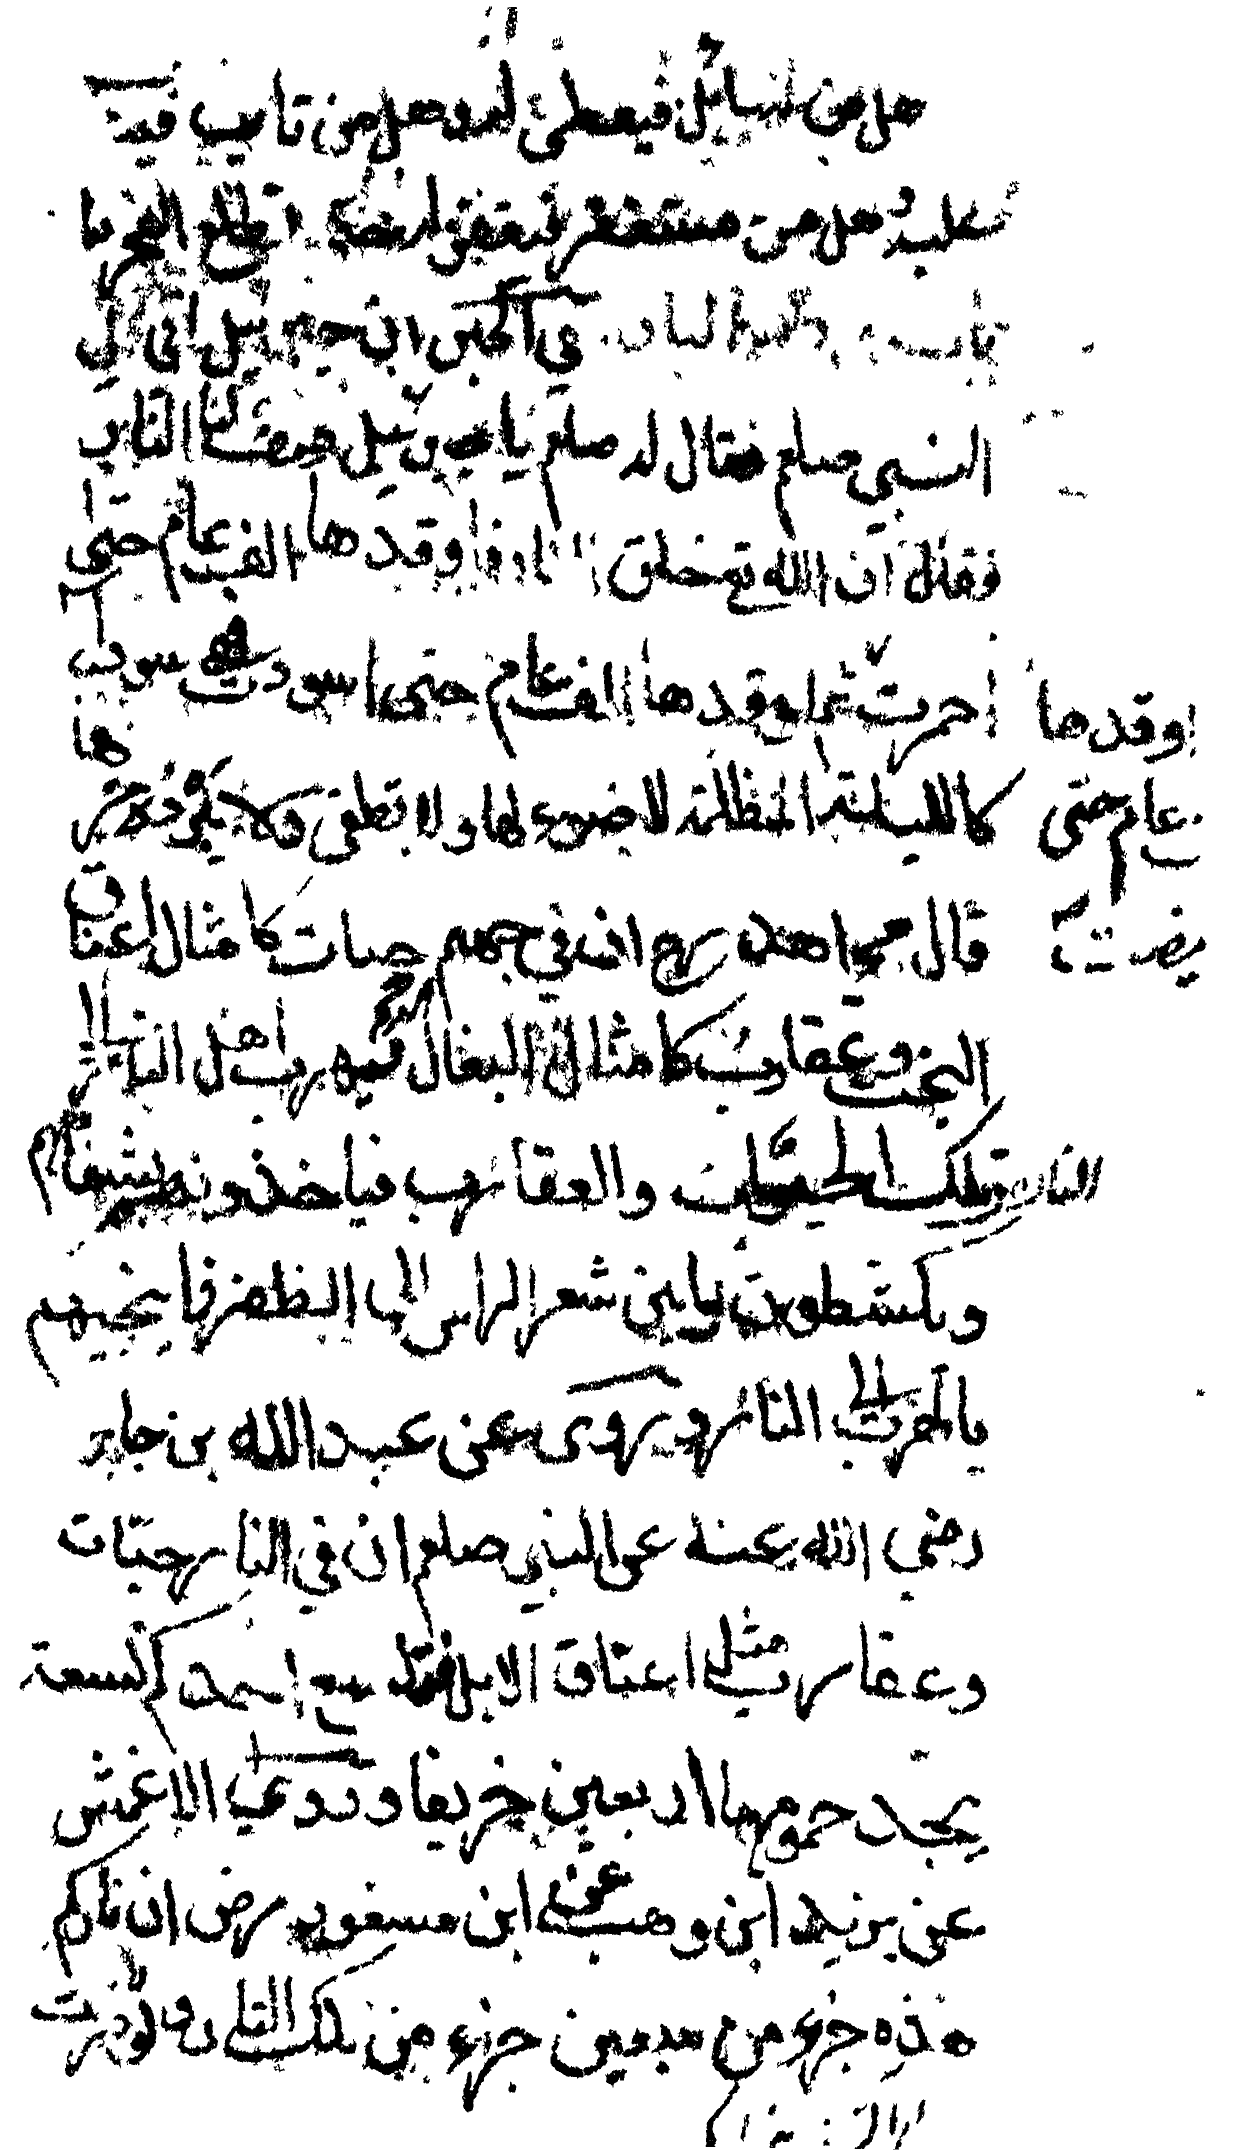 هل من سايل فيعطى له وهل من تايب فيتوب
عليه هل من مستغفر فيغفر له حتى يطلع الفجر
باب الباب في الخبر ان جبرئيل اتى الى
النبي صلعم فقال له صلعم يا جبرئيل صف لنا النار
فقال ان الله تع خلق النار فاوقدها الف عام حتى
احمرت ثم اوقدها الف عام حتى اسودت فهي سودا
اوقدها
عام حتى
بيضت
كالليلة المظلمة لا ضوء لها ولا تطفى جمرها
قال مجاهد رح ان في جهنم حيات كامثال اعناق
البخت وعقارب كامثال البغال فيهرب اهل النار الى
النار وتلك الحيات والعقارب فياخذون بشفاههم
ويكشطون ما بين شعر الراس الى الظفر فما ينجيهم
بالهرب الى النار ويروى عن عبد الله بن جابر
رضي الله عنه عن النبي صلعم ان في النار حيات
وعقارب مثل اعناق الابل فتلسع احدكم لسعة
يجد حموها اربعين خريفا وروى الاعمش
عن يزيد ابن وهب عن ابن مسعود رض ان ناركم
هذه جزء من سبعين جزء من تلك النار ولو ضربت